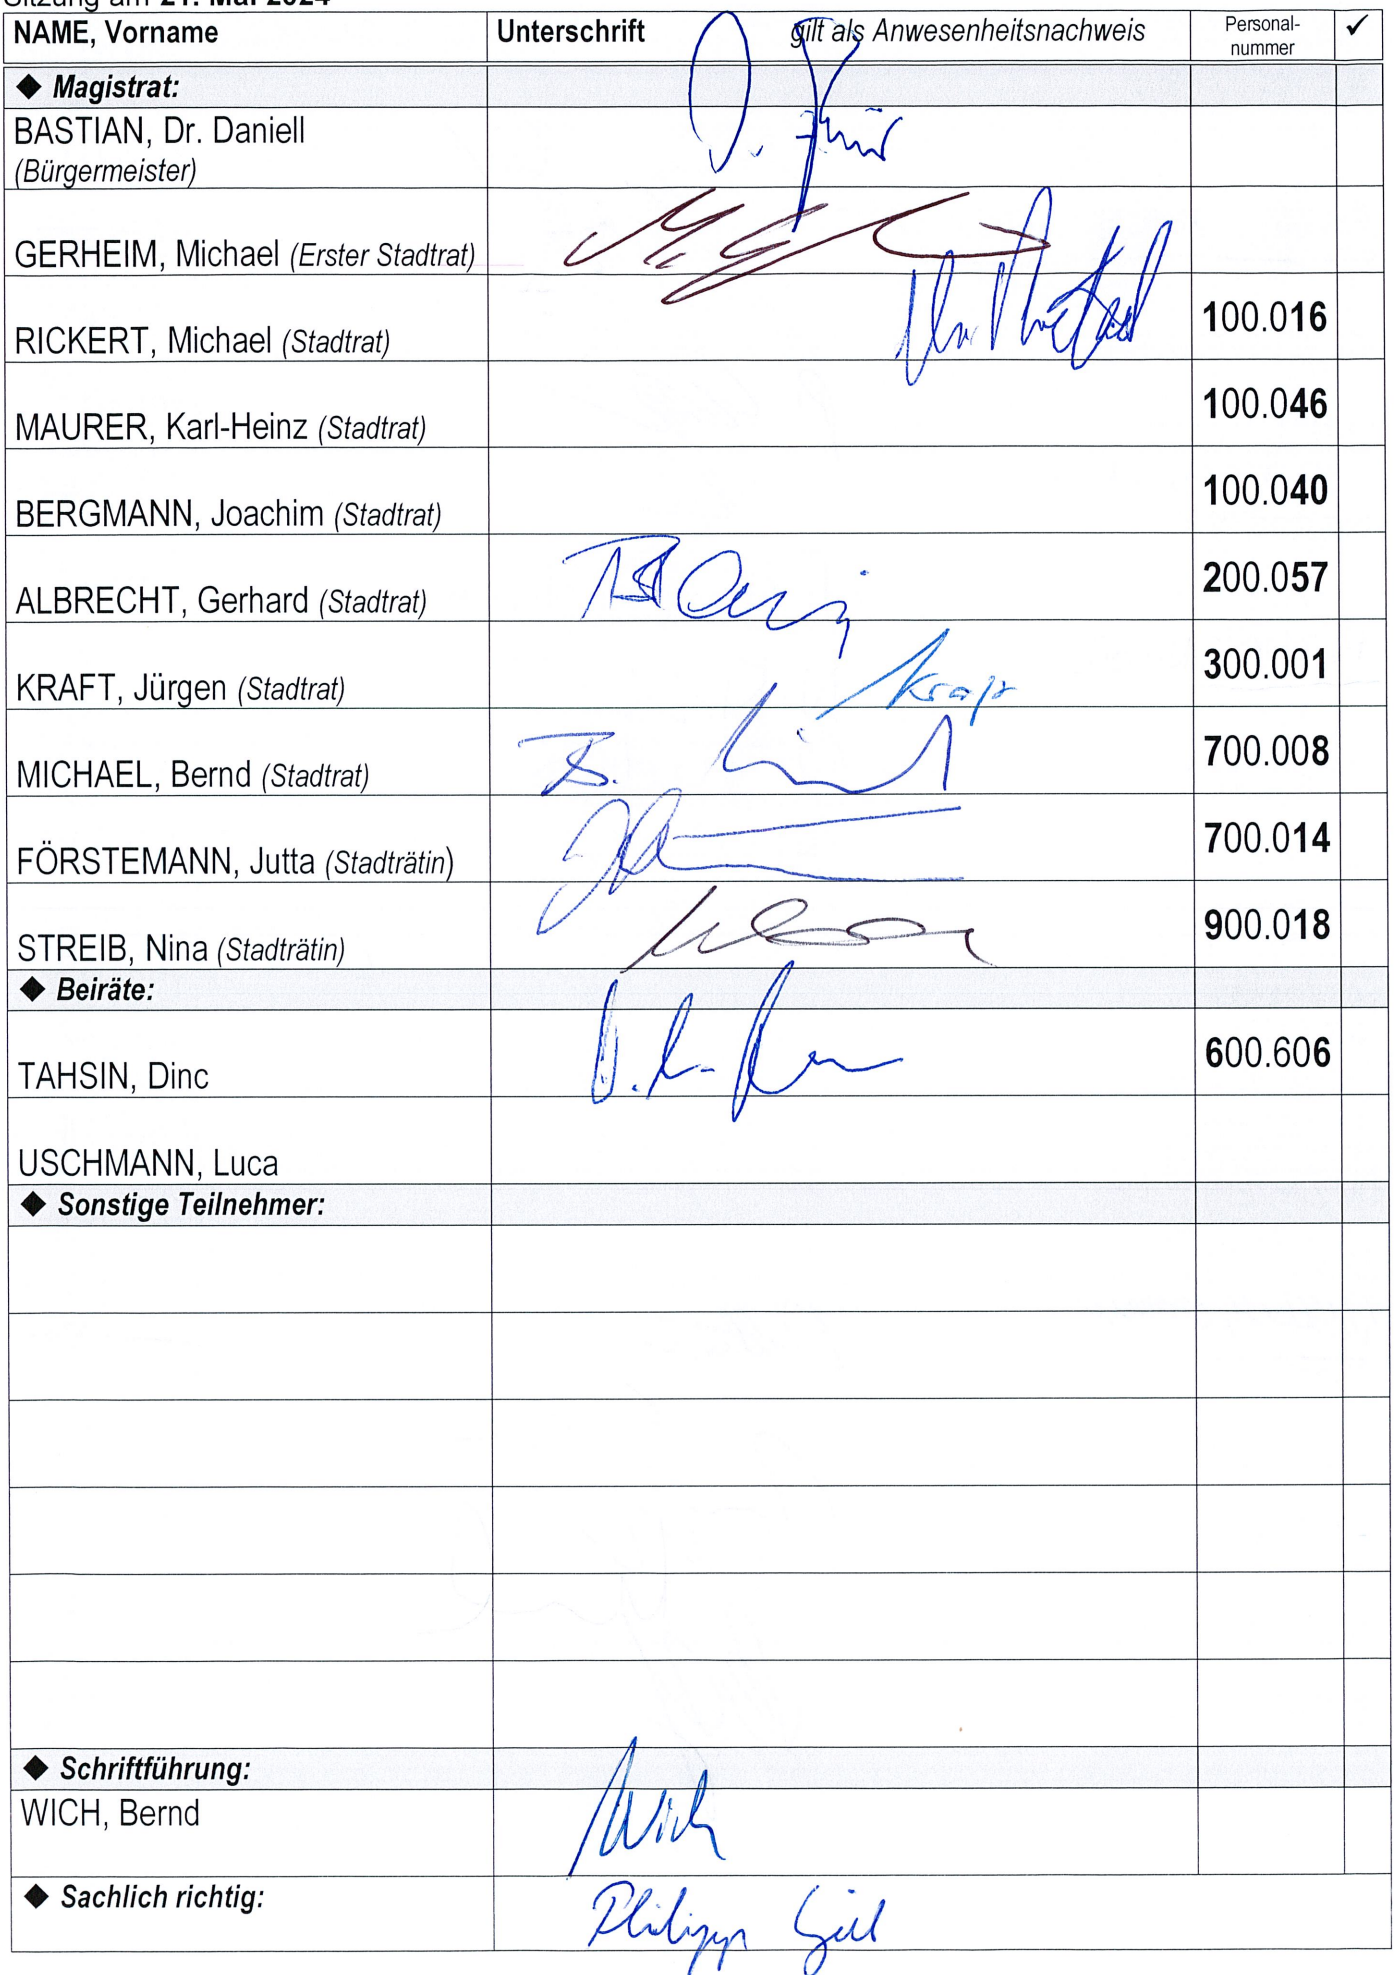 Sitzung am 21. Mai 2024
NAME, Vorname Unterschrift gilt als Anwesenheitsnachweis Personal-nummer ✓
◆ Magistrat:
BASTIAN, Dr. Daniell
(Bürgermeister)
GERHEIM, Michael (Erster Stadtrat)
RICKERT, Michael (Stadtrat) 100.016
MAURER, Karl-Heinz (Stadtrat) 100.046
BERGMANN, Joachim (Stadtrat) 100.040
ALBRECHT, Gerhard (Stadtrat) 200.057
KRAFT, Jürgen (Stadtrat) Kraft 300.001
MICHAEL, Bernd (Stadtrat) B. 700.008
FÖRSTEMANN, Jutta (Stadträtin) 700.014
STREIB, Nina (Stadträtin) 900.018
◆ Beiräte:
TAHSIN, Dinc 600.606
USCHMANN, Luca
◆ Sonstige Teilnehmer:
◆ Schriftführung:
WICH, Bernd Wich
◆ Sachlich richtig: Philipp